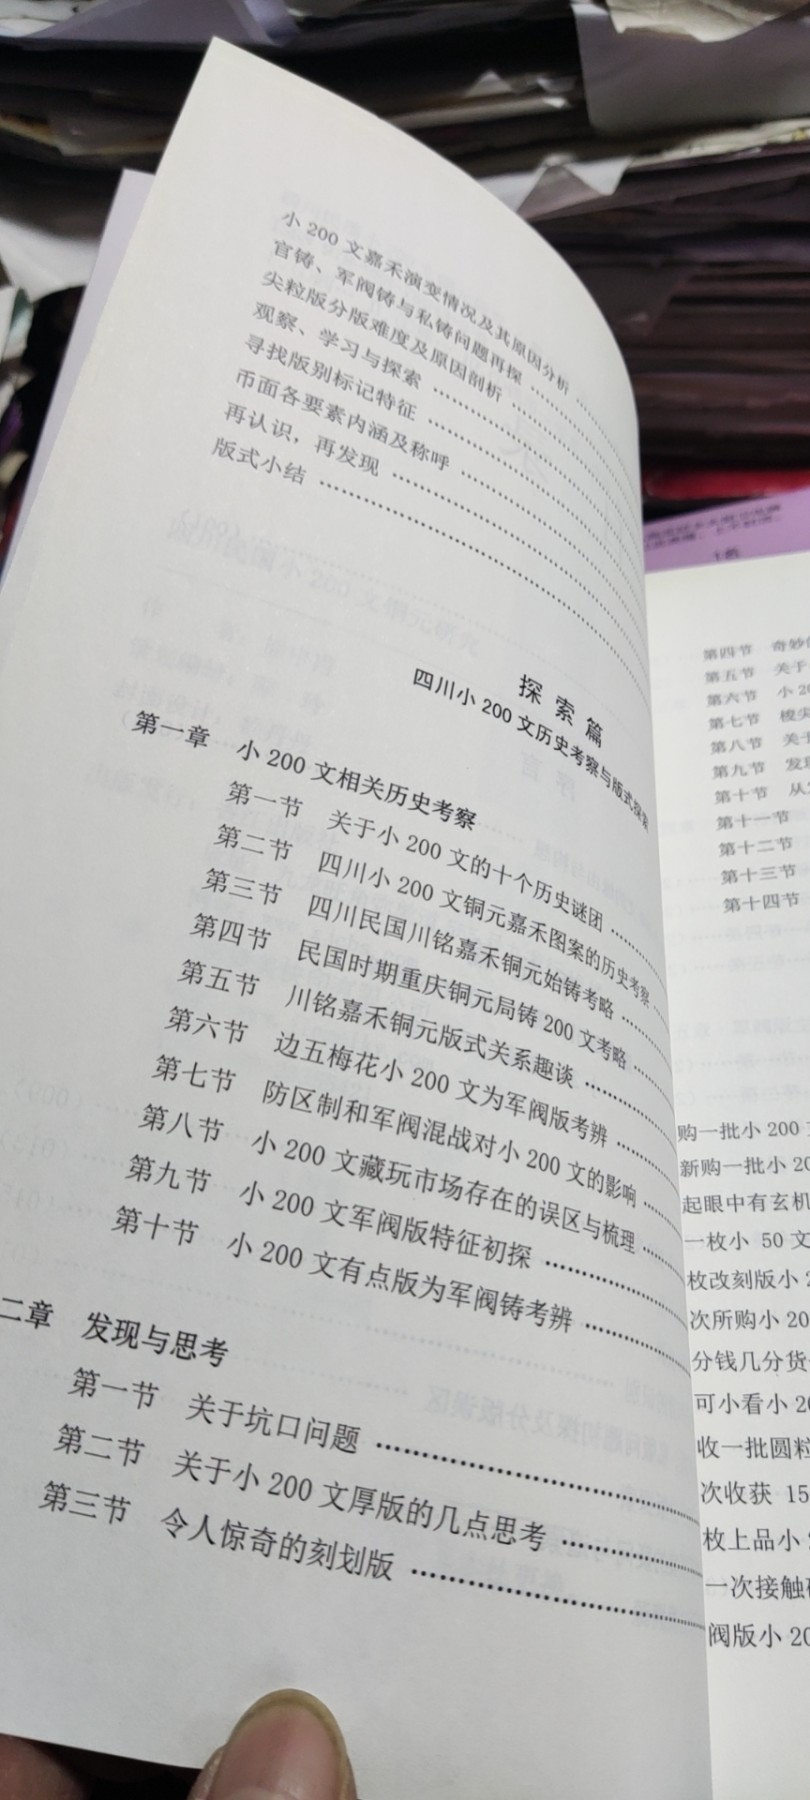 小 200 文嘉禾演变情况及其原因分析
官铸、军阀铸与私铸问题再探
尖粒版分版难度及原因剖析
观察、学习与探索
寻找版别标记特征
币面各要素内涵及称呼
再认识，再发现
版式小结
探索篇
四川小 200 文历史考察与版式探索
第一章 小 200 文相关历史考察
第一节 关于小 200 文的十个历史谜团
第二节 四川小 200 文铜元嘉禾图案的历史考察
第三节 四川民国川铭嘉禾铜元始铸考略
第四节 民国时期重庆铜元局铸 200 文考略
第五节 川铭嘉禾铜元版式关系趣谈
第六节 边五梅花小 200 文为军阀版考辨
第七节 防区制和军阀混战对小 200 文的影响
第八节 小 200 文藏玩市场存在的误区与梳理
第九节 小 200 文军阀版特征初探
第十节 小 200 文有点版为军阀铸考辨
二章 发现与思考
第一节 关于坑口问题
第二节 关于小 200 文厚版的几点思考
第三节 令人惊奇的刻划版
第四节 奇妙
第五节 关于
第六节 小 20
第七节 梭尖
第八节 关于
第九节 发现
第十节 从
第十一节
第十二节
第十三节
第十四节
购一批小 200
新购一批小 20
起眼中有玄机
一枚小 50 文
枚改刻版小
次所购小 20
分钱几分货
可小看小 20
收一批圆粒
次收获 15
枚上品小
一次接触
阀版小 20